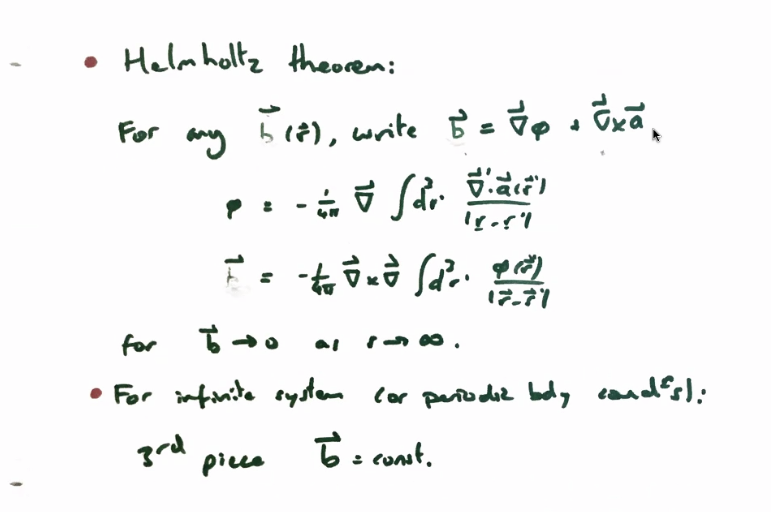 • Helmholtz theorem:
For any b⃗(r⃗), write b⃗ = ∇⃗φ + ∇⃗×a⃗.
φ = -1/4π ∇⃗ ∫d³r' ∇⃗'·a⃗(r⃗')/|r-r'|
b⃗ = -1/4π ∇⃗×∇⃗ ∫d³r' φ(r⃗')/|r⃗-r⃗'|
for b⃗ → 0 as r → ∞.
• For infinite system (or periodic bdy condⁿs):
3rd piece b⃗ = const.